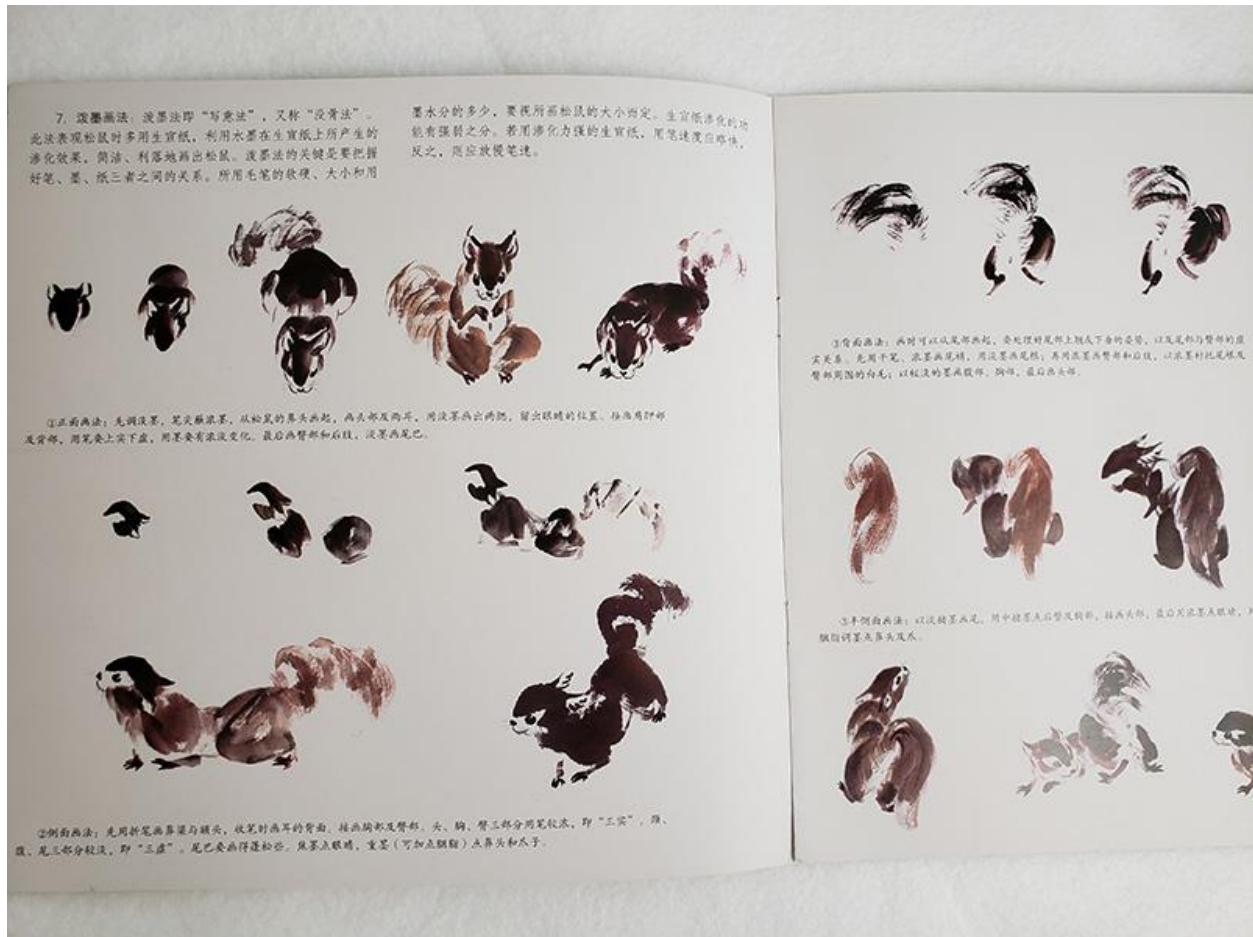 7. 泼墨画法：泼墨法即“写意法”，又称“没骨法”。
此法表现松鼠时多用生宣纸，利用水墨在生宣纸上所产生的
渗化效果，简洁、利落地画出松鼠。泼墨法的关键是要把握
好笔、墨、纸三者之间的关系。所用毛笔的软硬、大小和用
墨水分的多少，要视所画松鼠的大小而定。生宣纸渗化的功
能有强弱之分。若用渗化力强的生宣纸，用笔速度应略快，
反之，则应放慢笔速。
①正面画法：先调淡墨，笔尖蘸浓墨，从松鼠的鼻头画起，画头部及两耳，用淡墨画出两腮，留出眼睛的位置。接画肩胛部
及背部，用笔要上实下虚，用墨要有浓淡变化。最后画臀部和后肢，淡墨画尾巴。
②侧面画法：先用折笔画鼻梁与额头，收笔时画耳的背面。接画胸部及臀部。头、胸、臀三部分用笔较浓，即“三实”。颈、
腹、尾三部分较淡，即“三虚”。尾巴要画得蓬松些。焦墨点眼睛，重墨（可加点胭脂）点鼻头和爪子。
③背面画法：画时可以从尾部画起，要处理好尾部上翘及下垂的姿势，以及尾部与臀部的虚
实关系。先用干笔、浓墨画尾梢，用淡墨画尾根；再用浓墨画臀部和后肢，以浓墨衬托尾根及
臀部周围的白毛；以较淡的墨画腹部、胸部，最后画头部。
③半侧面画法：以淡赭墨画尾，用中赭墨点后臀及胸部，接画头部，最后买浓墨点眼睛，
胭脂调墨点鼻头及爪。